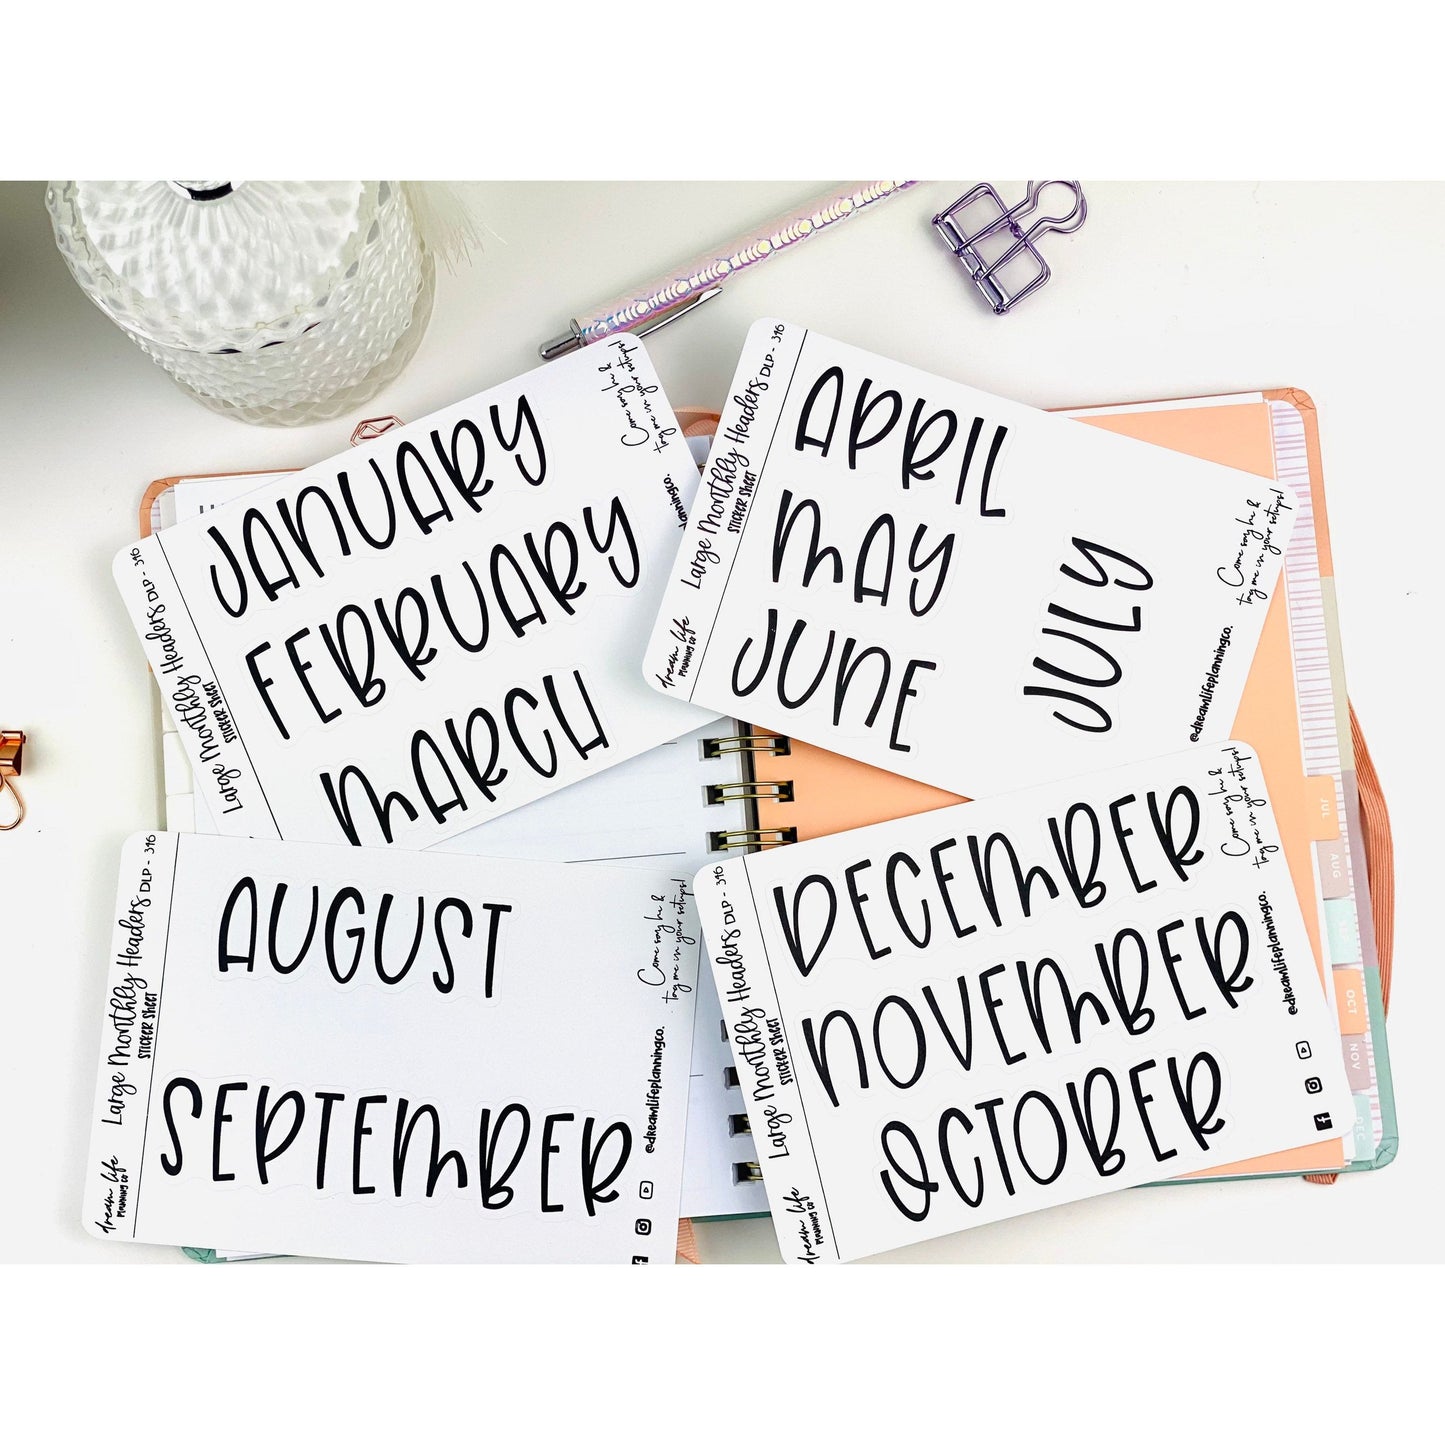 JANUARY
FEBRUARY
MARCH
Large Monthly Headers DLP - 396
STICKER SHEET
Come say hi &
tag me in your setups!
lanningco.
APRIL
MAY
JUNE
JULY
Large Monthly Headers DLP - 396
STICKER SHEET
dream life
PLANNING CO
Come say hi &
tag me in your setups!
@dreamlifeplanningco.
AUGUST
SEPTEMBER
Large Monthly Headers DLP - 396
STICKER SHEET
dream life
PLANNING CO
Come say hi &
tag me in your setups!
@dreamlifeplanningco.
DECEMBER
NOVEMBER
OCTOBER
Large Monthly Headers DLP - 396
STICKER SHEET
dream life
PLANNING CO
Come say hi &
tag me in your setups!
@dreamlifeplanningco.
JUL
AUG
OCT
NOV
DEC